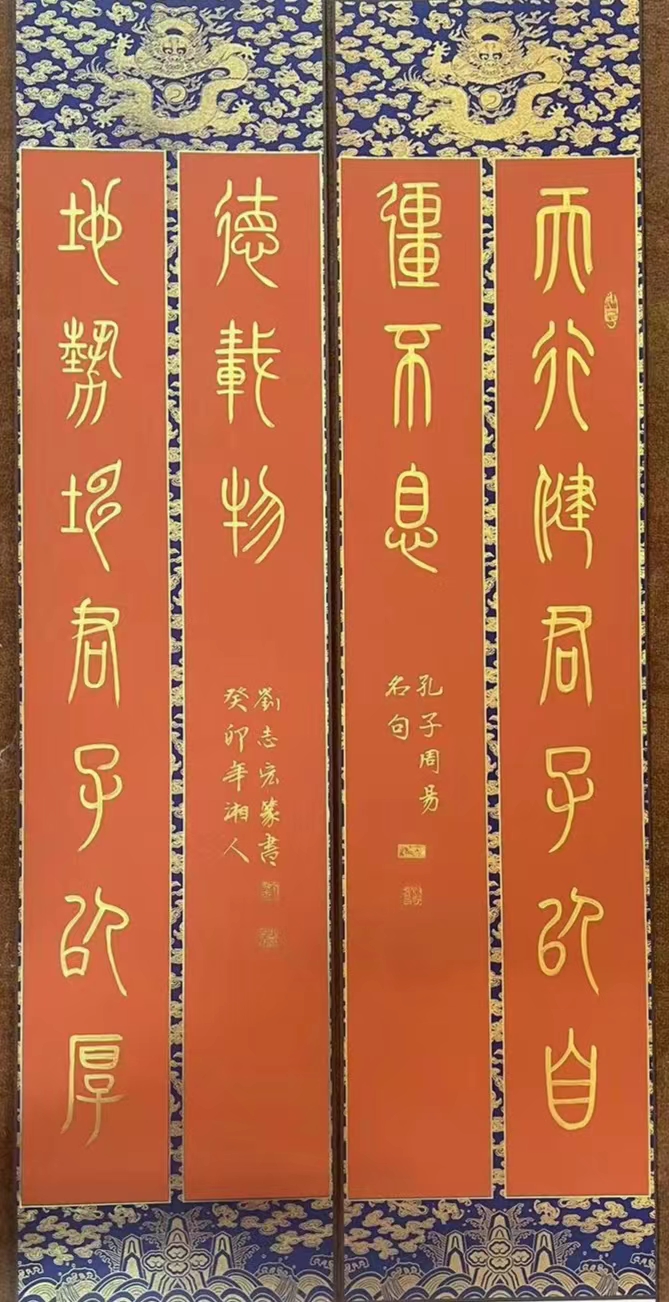 天行健君子以自
彊不息
孔子周易
名句
地勢坤君子以厚
德載物
癸卯年湘人
劉志宏篆書